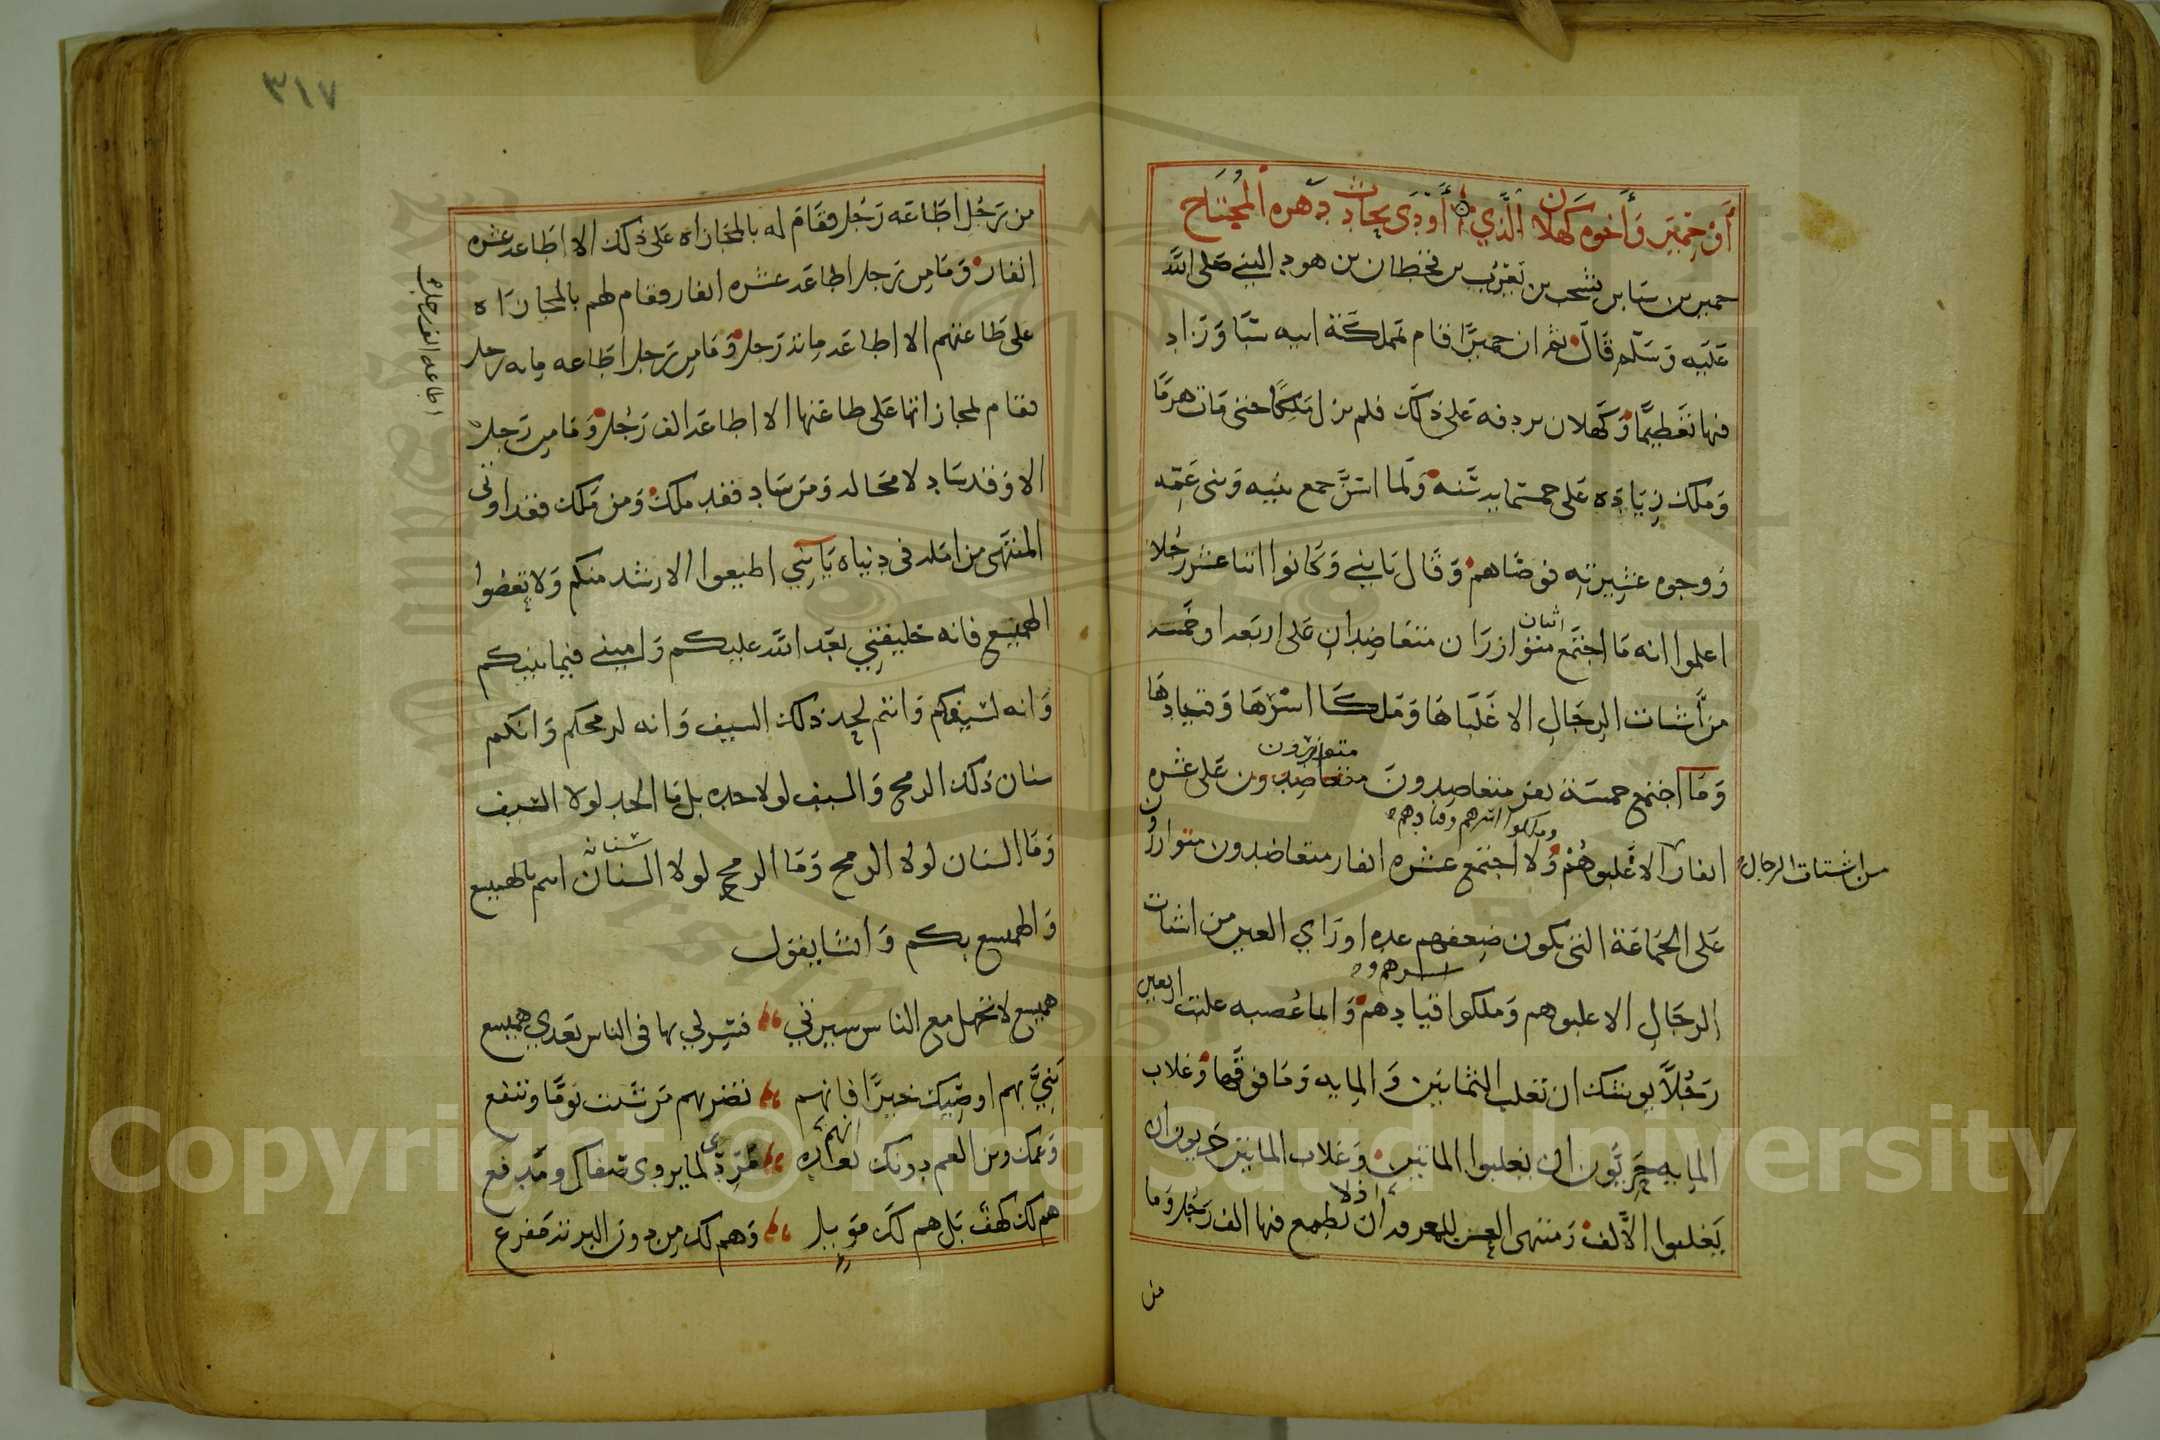 أو حمير وأخوه كهلان الذي أودى بحادث دهره المجتاح
حمير بن سبا بن يشجب بن يعرب بن قحطان بن هود النبي صلى الله
عليه وسلم قال نعم ان حميرا قام بمملكة ابيه سبا وزاد
فيها تعظيما وكهلان يردفه على ذلك فلم يزل ملكا حتى مات هرما
وملك زيادة على خمسمايه سنه ولما اسن جمع بنيه وبني عمه
ووجوه عشيرته فوصاهم وقال يا بني وكانوا اثنا عشر رجلا
اعلموا انه ما اجتمع اثنان متوازران متعاضدان على اربعه او خمسه
من أشتات الرجال الا غلباها وملكا اسرها وقيادها
وما اجتمع خمسة نفر متعاضدون متوازرون على عشره
انفار الا غلبوهم وملكوا اسرهم وقيادهم ولا اجتمع عشره انفار متعاضدون متوازرون
من اشتات الرجال
على الجماعة التي يكون ضعفهم عده او راي العين من اشتات
الرجال الا غلبوهم وملكوا اسرهم وقيادهم وانما عصبه غلبت اربعين
رجلا يوشك ان تغلب الثمانين والمايه وما فوقها وغلاب
المايه حريون ان يغلبوا المائتين وغلاب المائتين حريون ان
يغلبوا الألف ومنتهى العز ان يطمع فيها الف رجل وما
من
٣١٧
من رجل اطاعه رجل فقام له بالمجازاه على ذلك الا اطاعه عشره
انفار وما من رجل اطاعه عشره انفار فقام لهم بالمجازاه
على طاعتهم الا اطاعه مائة رجل وما من رجل اطاعه مايه رجل
فقام لمجازاتها على طاعتها الا اطاعه الف رجل وما من رجل
اطاعه الف رجل
الا وقد ساد لا محاله ومن ساد فقد ملك ومن ملك فقد اوتى
المنتهى من امله في دنياه يا بني اطيعوا الارشد منكم ولا تعصوا
الهميسع فانه خليفتي بعد الله عليكم واميني فيما بينكم
وانه لسيفكم وانتم لحد ذلك السيف وانه لرمحكم وانكم
سنان ذلك الرمح والسيف لولا حده بل ما الحد لولا السيف
وما السنان لولا الرمح وما الرمح لولا السنان انتم بالهميسع
والهميسع بكم وانشا يقول
هميسع لا تجهل مع الناس سيرتي فسر لي بها في الناس بعدي هميسع
بني بهم اوصيك خيرا فانهم تضر بهم من شئت يوما وتنفع
وعمك وبن العم دونك انهم لما يروى صفاك ومدفع
هم لك كهف بل هم لك موئل وهم لك من دون البرية مفزع